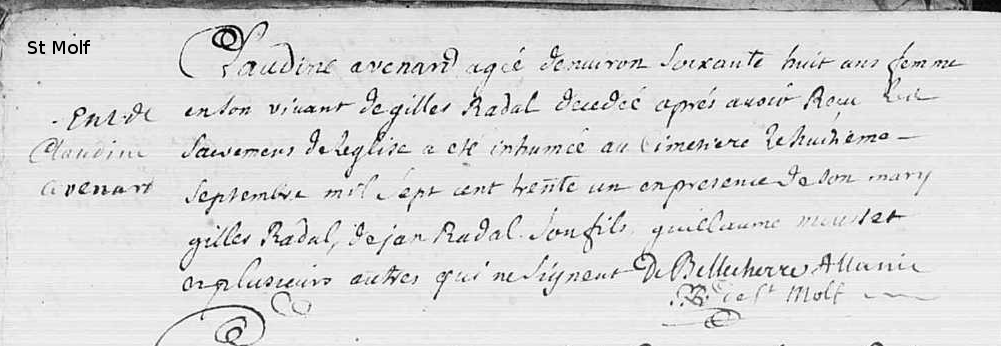 St Molf
Claudine avenard agéé denuiron Soixante huit ans femme
Ent. de
Claudine
avenard
en son vivant de gilles Radal decedeé aprés auoir Receu Les
Sacremens de Leglise a eté inhumeé au Cimetiere Le huitieme
Septembre mil Sept cent trente un en presence de son mary
gilles Radal, de jan Radal Son fils, guillaume mousset
et plusieurs autres qui ne Signent De Bellecherre Allanic
R. de St Molf